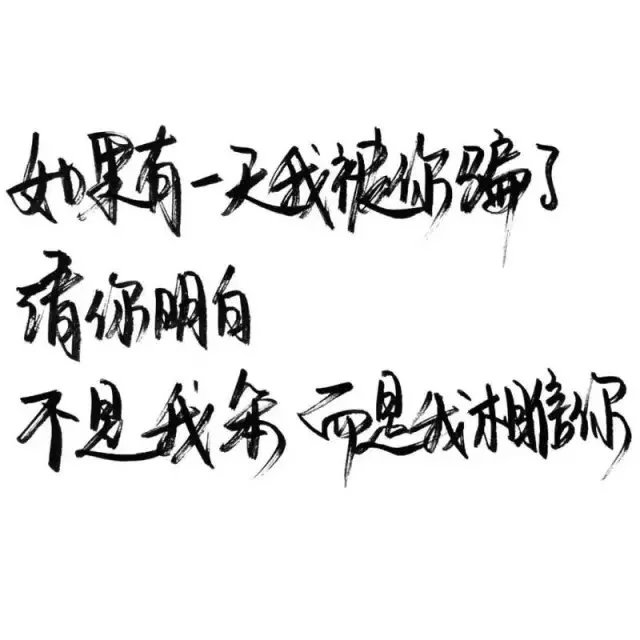 如果有一天我被你骗了
请你明白
不是我笨 而是我相信你